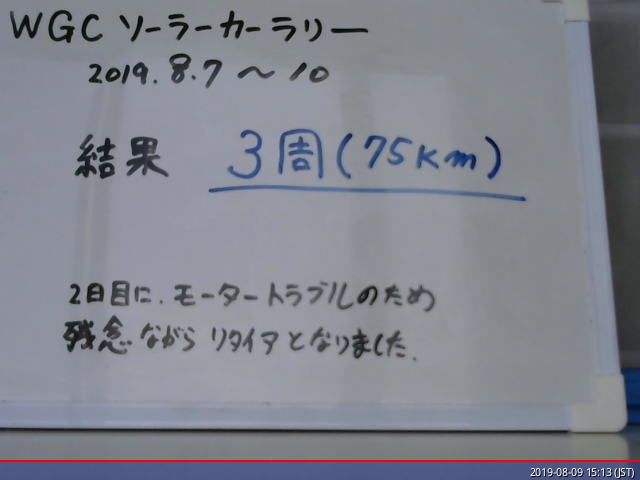 WGC ソーラーカーラリー
2019.8.7～10
結果 3周(75km)
2日目に、モータートラブルのため
残念ながらリタイアとなりました.
2019-08-09 15:13 (JST)